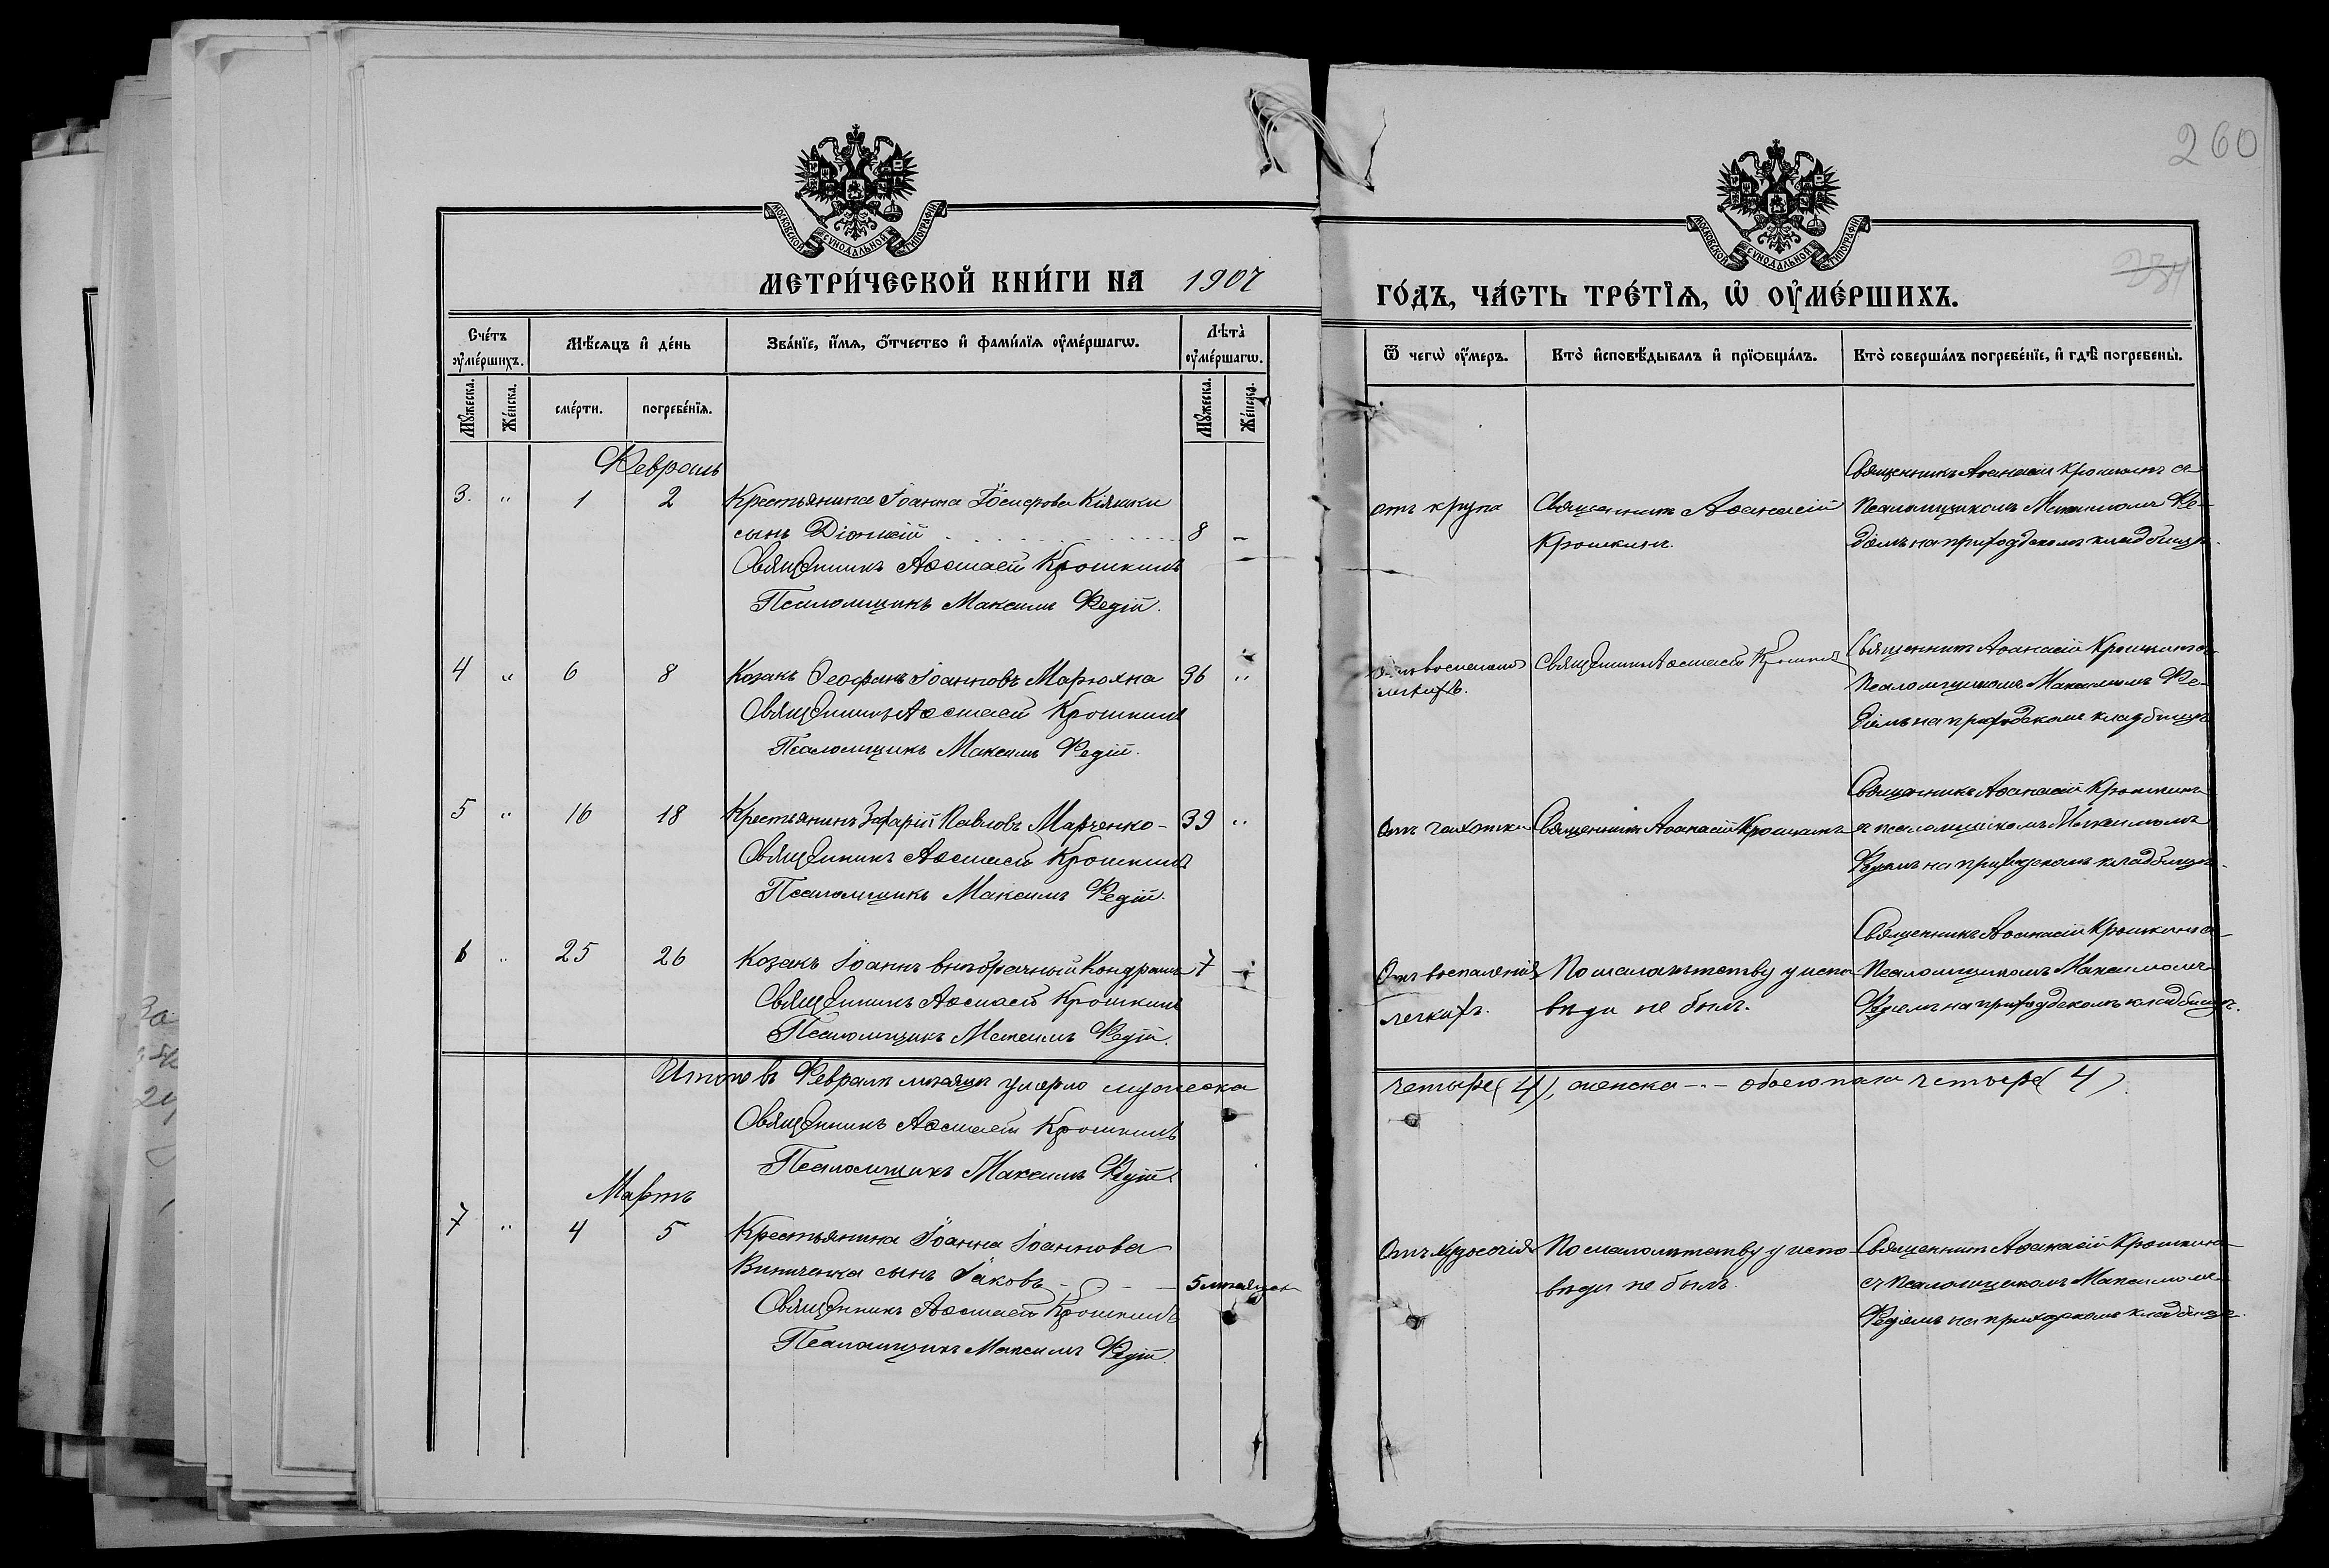 260
МОСКОВСКОЙ СѴНОДАЛЬНОЙ ТИПОГРАФІИ
МОСКОВСКОЙ СѴНОДАЛЬНОЙ ТИПОГРАФІИ
МЕТРИ́ЧЕСКОЙ КНИ́ГИ НА 1907
ГО́ДЪ, ЧА́СТЬ ТРЕ́ТІѦ, Ѡ҆ ОУ҆МЕ́РШИХЪ.
Сче́тъ оу҆ме́ршихъ.
Мѣ́сѧцъ и҆ де́нь
Зва́нїе, и҆́мѧ, ѻ҆́тчество и҆ фами́лїѧ оу҆ме́ршагѡ.
Лѣ́та оу҆ме́ршагѡ.
Ѿ чегѡ̀ оу҆́меръ.
Кто̀ и҆сповѣ́дывалъ и҆ прїѡбща́лъ.
Кто̀ соверша́лъ погребе́нїе, и҆ гдѣ̀ погребены̀.
Мꙋ́жеска.
Же́нска.
сме́рти.
погребе́нїѧ.
Мꙋ́жеска.
Же́нска.
Февраль
3. " 1 2 Крестьянина Іоанна Іосифова Кіяшки
сынъ Діонисій 8 -
Священникъ Аѳанасій Крошкинъ
Псаломщикъ Максимъ Федій.
отъ крупа
Священникъ Аѳанасій
Крошкинъ.
Священникъ Аѳанасій Крошкинъ съ
Псаломщикомъ Максимомъ Фе-
діемъ на приходскомъ кладбищѣ.
4 " 6 8 Козакъ Ѳеофанъ Іоанновъ Марюхна 36 "
Священникъ Аѳанасій Крошкинъ
Псаломщикъ Максимъ Федій.
Отъ воспаленія
легкихъ.
Священникъ Аѳанасій Крошкинъ
Священникъ Аѳанасій Крошкинъ съ
Псаломщикомъ Максимомъ Фе-
діемъ на приходскомъ кладбищѣ
5 " 16 18 Крестьянинъ Захарій Павловъ Марченко - 39 "
Священникъ Аѳанасій Крошкинъ
Псаломщикъ Максимъ Федій.
Отъ чахотки
Священникъ Аѳанасій Крошкинъ
Священникъ Аѳанасій Крошкинъ
съ псаломщикомъ Максимомъ
Федіемъ на приходскомъ кладбищѣ.
6 " 25 26 Козакъ Іоаннъ внѣбрачный Кондрашъ 7 -
Священникъ Аѳанасій Крошкинъ
Псаломщикъ Максимъ Федій.
Отъ воспаленія
легкихъ.
По малолѣтству у испо-
вѣди не былъ.
Священникъ Аѳанасій Крошкинъ съ
Псаломщикомъ Максимомъ
Федіемъ на приходскомъ кладбищѣ.
Итого въ Февралѣ мѣсяцѣ умерло мужеска
четыре (4), женска - " - обоего пола четыре (4).
Священникъ Аѳанасій Крошкинъ
Псаломщикъ Максимъ Федій
Мартъ
7 " 4 5 Крестьянина Іоанна Іоаннова
Винниченка сынъ Іаковъ - - - 5 мѣсяцевъ
Священникъ Аѳанасій Крошкинъ
Псаломщикъ Максимъ Федій.
Отъ худосочія
По малолѣтству у испо-
вѣди не былъ.
Священникъ Аѳанасій Крошкинъ
съ Псаломщикомъ Максимомъ
Федіемъ на приходскомъ кладбищѣ.